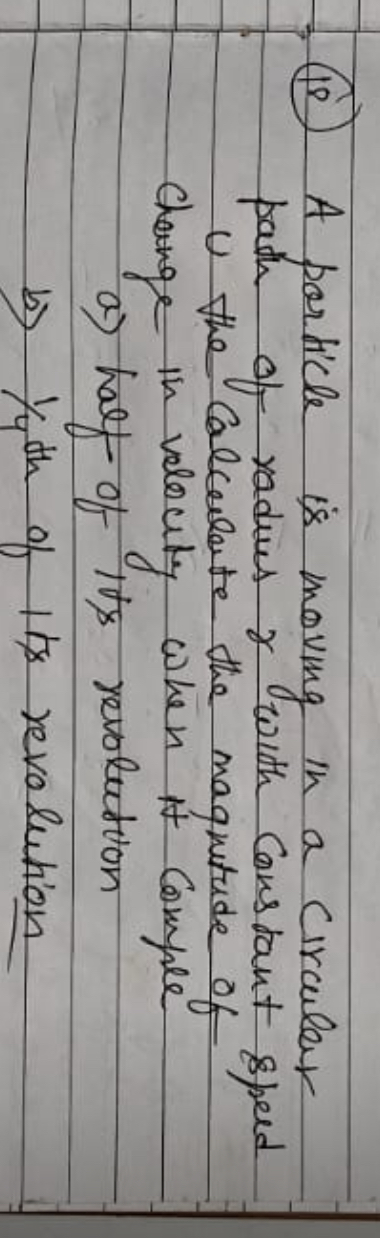 18 A particle is moving in a Circular
path of radius r with Constant speed
υ the Calculate the magnitude of
Change in velocity when it Comple
a) half of Its revolution
b) 1/4th of Its revolution